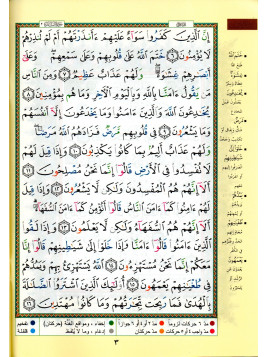 إِنَّ ٱلَّذِينَ كَفَرُوا۟ سَوَآءٌ عَلَيْهِمْ ءَأَنذَرْتَهُمْ أَمْ لَمْ تُنذِرْهُمْ
لَا يُؤْمِنُونَ ٦ خَتَمَ ٱللَّهُ عَلَىٰ قُلُوبِهِمْ وَعَلَىٰ سَمْعِهِمْ ۖ وَعَلَىٰٓ
أَبْصَٰرِهِمْ غِشَٰوَةٌ ۖ وَلَهُمْ عَذَابٌ عَظِيمٌ ٧ وَمِنَ ٱلنَّاسِ مَن
يَقُولُ ءَامَنَّا بِٱللَّهِ وَبِٱلْيَوْمِ ٱلْءَاخِرِ وَمَا هُم بِمُؤْمِنِينَ ٨
يُخَٰدِعُونَ ٱللَّهَ وَٱلَّذِينَ ءَامَنُوا۟ وَمَا يَخْدَعُونَ إِلَّآ أَنفُسَهُمْ
وَمَا يَشْعُرُونَ ٩ فِى قُلُوبِهِم مَّرَضٌ فَزَادَهُمُ ٱللَّهُ مَرَضًا ۖ
وَلَهُمْ عَذَابٌ أَلِيمٌۢ بِمَا كَانُوا۟ يَكْذِبُونَ ١٠ وَإِذَا قِيلَ لَهُمْ
لَا تُفْسِدُوا۟ فِى ٱلْأَرْضِ قَالُوٓا۟ إِنَّمَا نَحْنُ مُصْلِحُونَ ١١
أَلَآ إِنَّهُمْ هُمُ ٱلْمُفْسِدُونَ وَلَٰكِن لَّا يَشْعُرُونَ ١٢ وَإِذَا قِيلَ
لَهُمْ ءَامِنُوا۟ كَمَآ ءَامَنَ ٱلنَّاسُ قَالُوٓا۟ أَنُؤْمِنُ كَمَآ ءَامَنَ ٱلسُّفَهَآءُ ۗ
أَلَآ إِنَّهُمْ هُمُ ٱلسُّفَهَآءُ وَلَٰكِن لَّا يَعْلَمُونَ ١٣ وَإِذَا لَقُوا۟
ٱلَّذِينَ ءَامَنُوا۟ قَالُوٓا۟ ءَامَنَّا وَإِذَا خَلَوْا۟ إِلَىٰ شَيَٰطِينِهِمْ قَالُوٓا۟ إِنَّا
مَعَكُمْ إِنَّمَا نَحْنُ مُسْتَهْزِءُونَ ١٤ ٱللَّهُ يَسْتَهْزِئُ بِهِمْ وَيَمُدُّهُمْ
فِى طُغْيَٰنِهِمْ يَعْمَهُونَ ١٥ أُو۟لَٰٓئِكَ ٱلَّذِينَ ٱشْتَرَوُا۟ ٱلضَّلَٰلَةَ
بِٱلْهُدَىٰ فَمَا رَبِحَت تِّجَٰرَتُهُمْ وَمَا كَانُوا۟ مُهْتَدِينَ ١٦
مدّ ٦ حركات لزوماً مدّ ٢ أو ٤ أو ٦ جوازاً إخفاء، ومواقع الغُنَّة (حركتان) تفخيم
مدّ واجب ٤ أو ٥ حركات مدّ حركتان إدغام، وما لا يُلفَظ قلقلة
٣